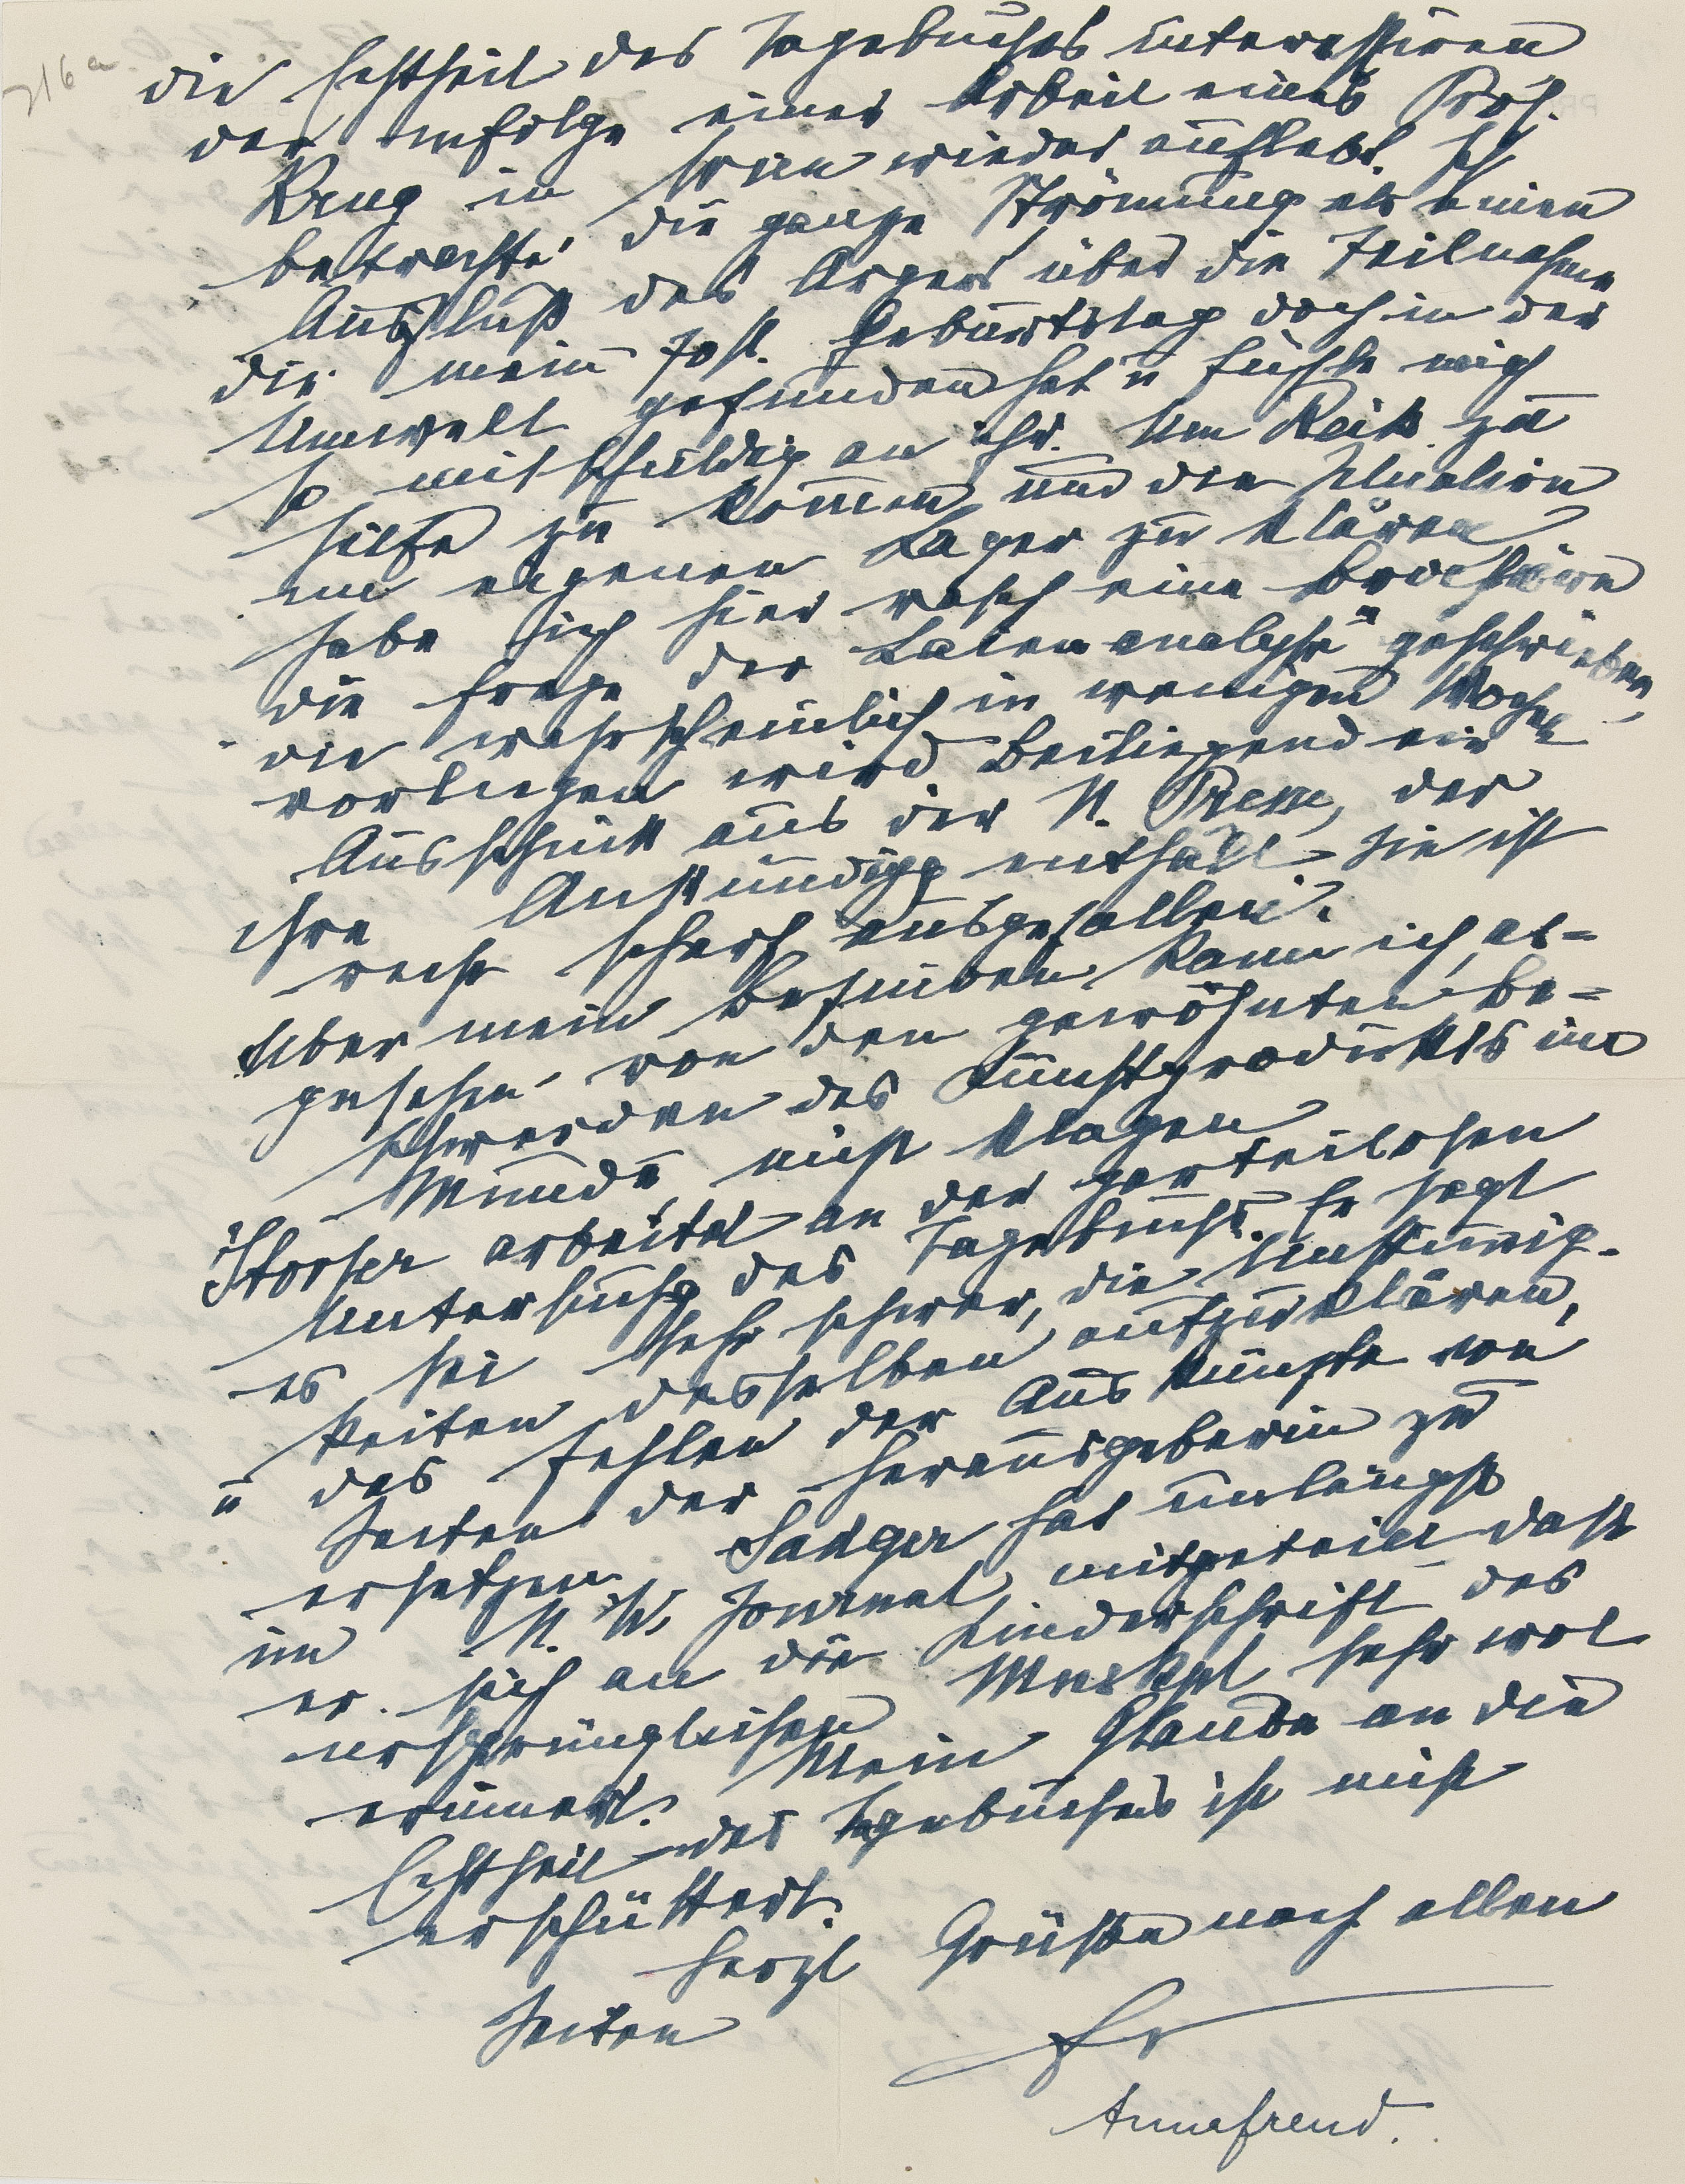 316a
die Echtheit des Tagebuches interessiren
der infolge einer Arbeit eines Prof.
Krug in Wien wieder auflebt. Ich
betrachte die ganze Strömung als einen
Ausfluß des Ärgers über die Teilnahme
die mein 70st. Geburtstag doch in der
Umwelt gefunden hat u fühle mich
so mitschuldig an ihr. Um Reik zu
Hilfe zu kommen und die Situation
im eigenen Lager zu klären
habe ich hier rasch eine Broschüre
die Frage der Laienanalyse" geschrieben,
die wahrscheinlich in wenigen Wochen
vorliegen wird Beiliegend ein
Ausschnitt aus der N. Presse, der
ihre Ankündigg enthält. Sie ist
recht scharf ausgefallen.
Über mein Befinden kann ich, ab=
gesehen von den gewöhnten Be=
schwerden des Kunstprodukts im
Munde, nicht klagen
Storfer arbeitet an der parteilosen
Untersuchg des Tagebuchs. Er sagt
es sei sehr schwer, die Unstimmig-
keiten desselben aufzuklären,
u das Fehlen der Auskünfte von
Seiten der Herausgeberin zu
ersetzen. Sadger hat unlängst
im N. W. Journal mitgeteilt daß
er sich an die Kinderschrift des
ursprünglichen Mskpt sehr wol
erinnert. Mein Glaube an die
Echtheit des Tagebuches ist nicht
erschüttert.
Herzl Grüße nach allen
Seiten
Fr
Annafreud.